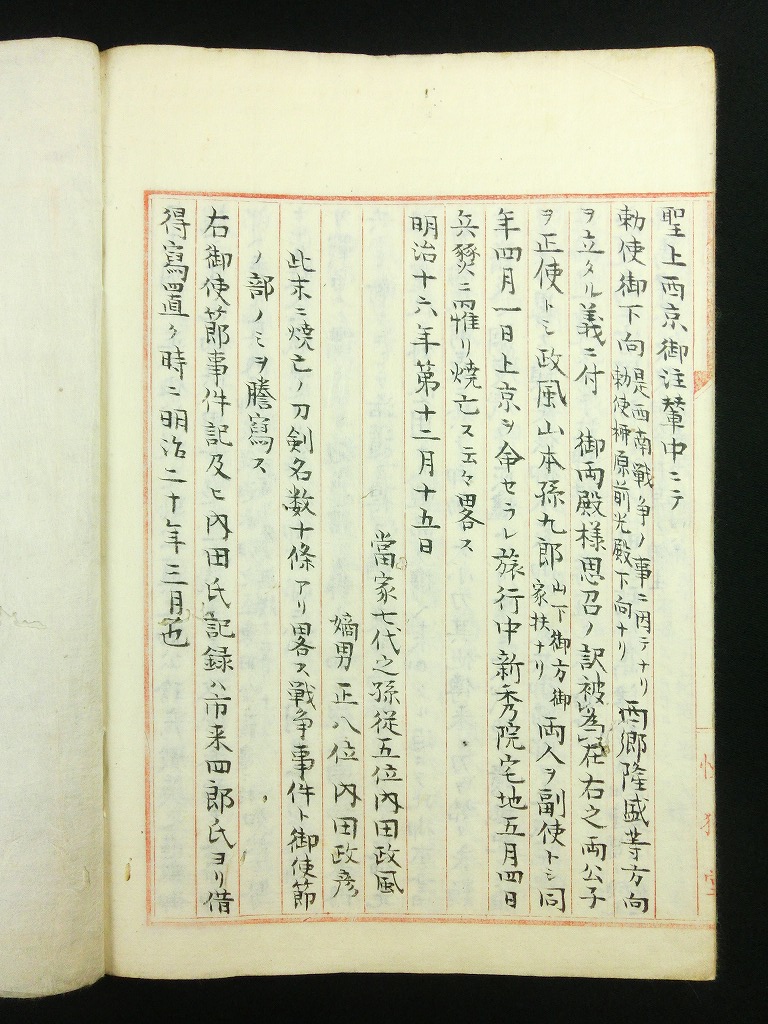 聖上西京御注輦中ニテ
勅使御下向是西南戦争ノ事ニ因テナリ勅使柳原前光殿下向ナリ西郷隆盛等方向
ヲ立タル義ニ付 御両殿様思召ノ訳被為在右之両公子
ヲ正使トシ政風山本孫九郎山下御方御家扶ナリ両人ヲ副使トシ同
年四月一日上京ヲ命セラレ旅行中新秀院宅地五月四日
兵燹ニ罹リ焼亡ス云々畧ス
明治十六年第十二月十五日
當家七代之孫従五位内田政風
嫡男正八位内田政彦
此末ニ焼亡ノ刀剣名数十條アリ畧ス戦争事件ト御使節
ノ部ノミヲ謄寫ス
右御使節事件記及ヒ内田氏記録ハ市来四郎氏ヨリ借
得寫置ク時ニ明治二十年三月也